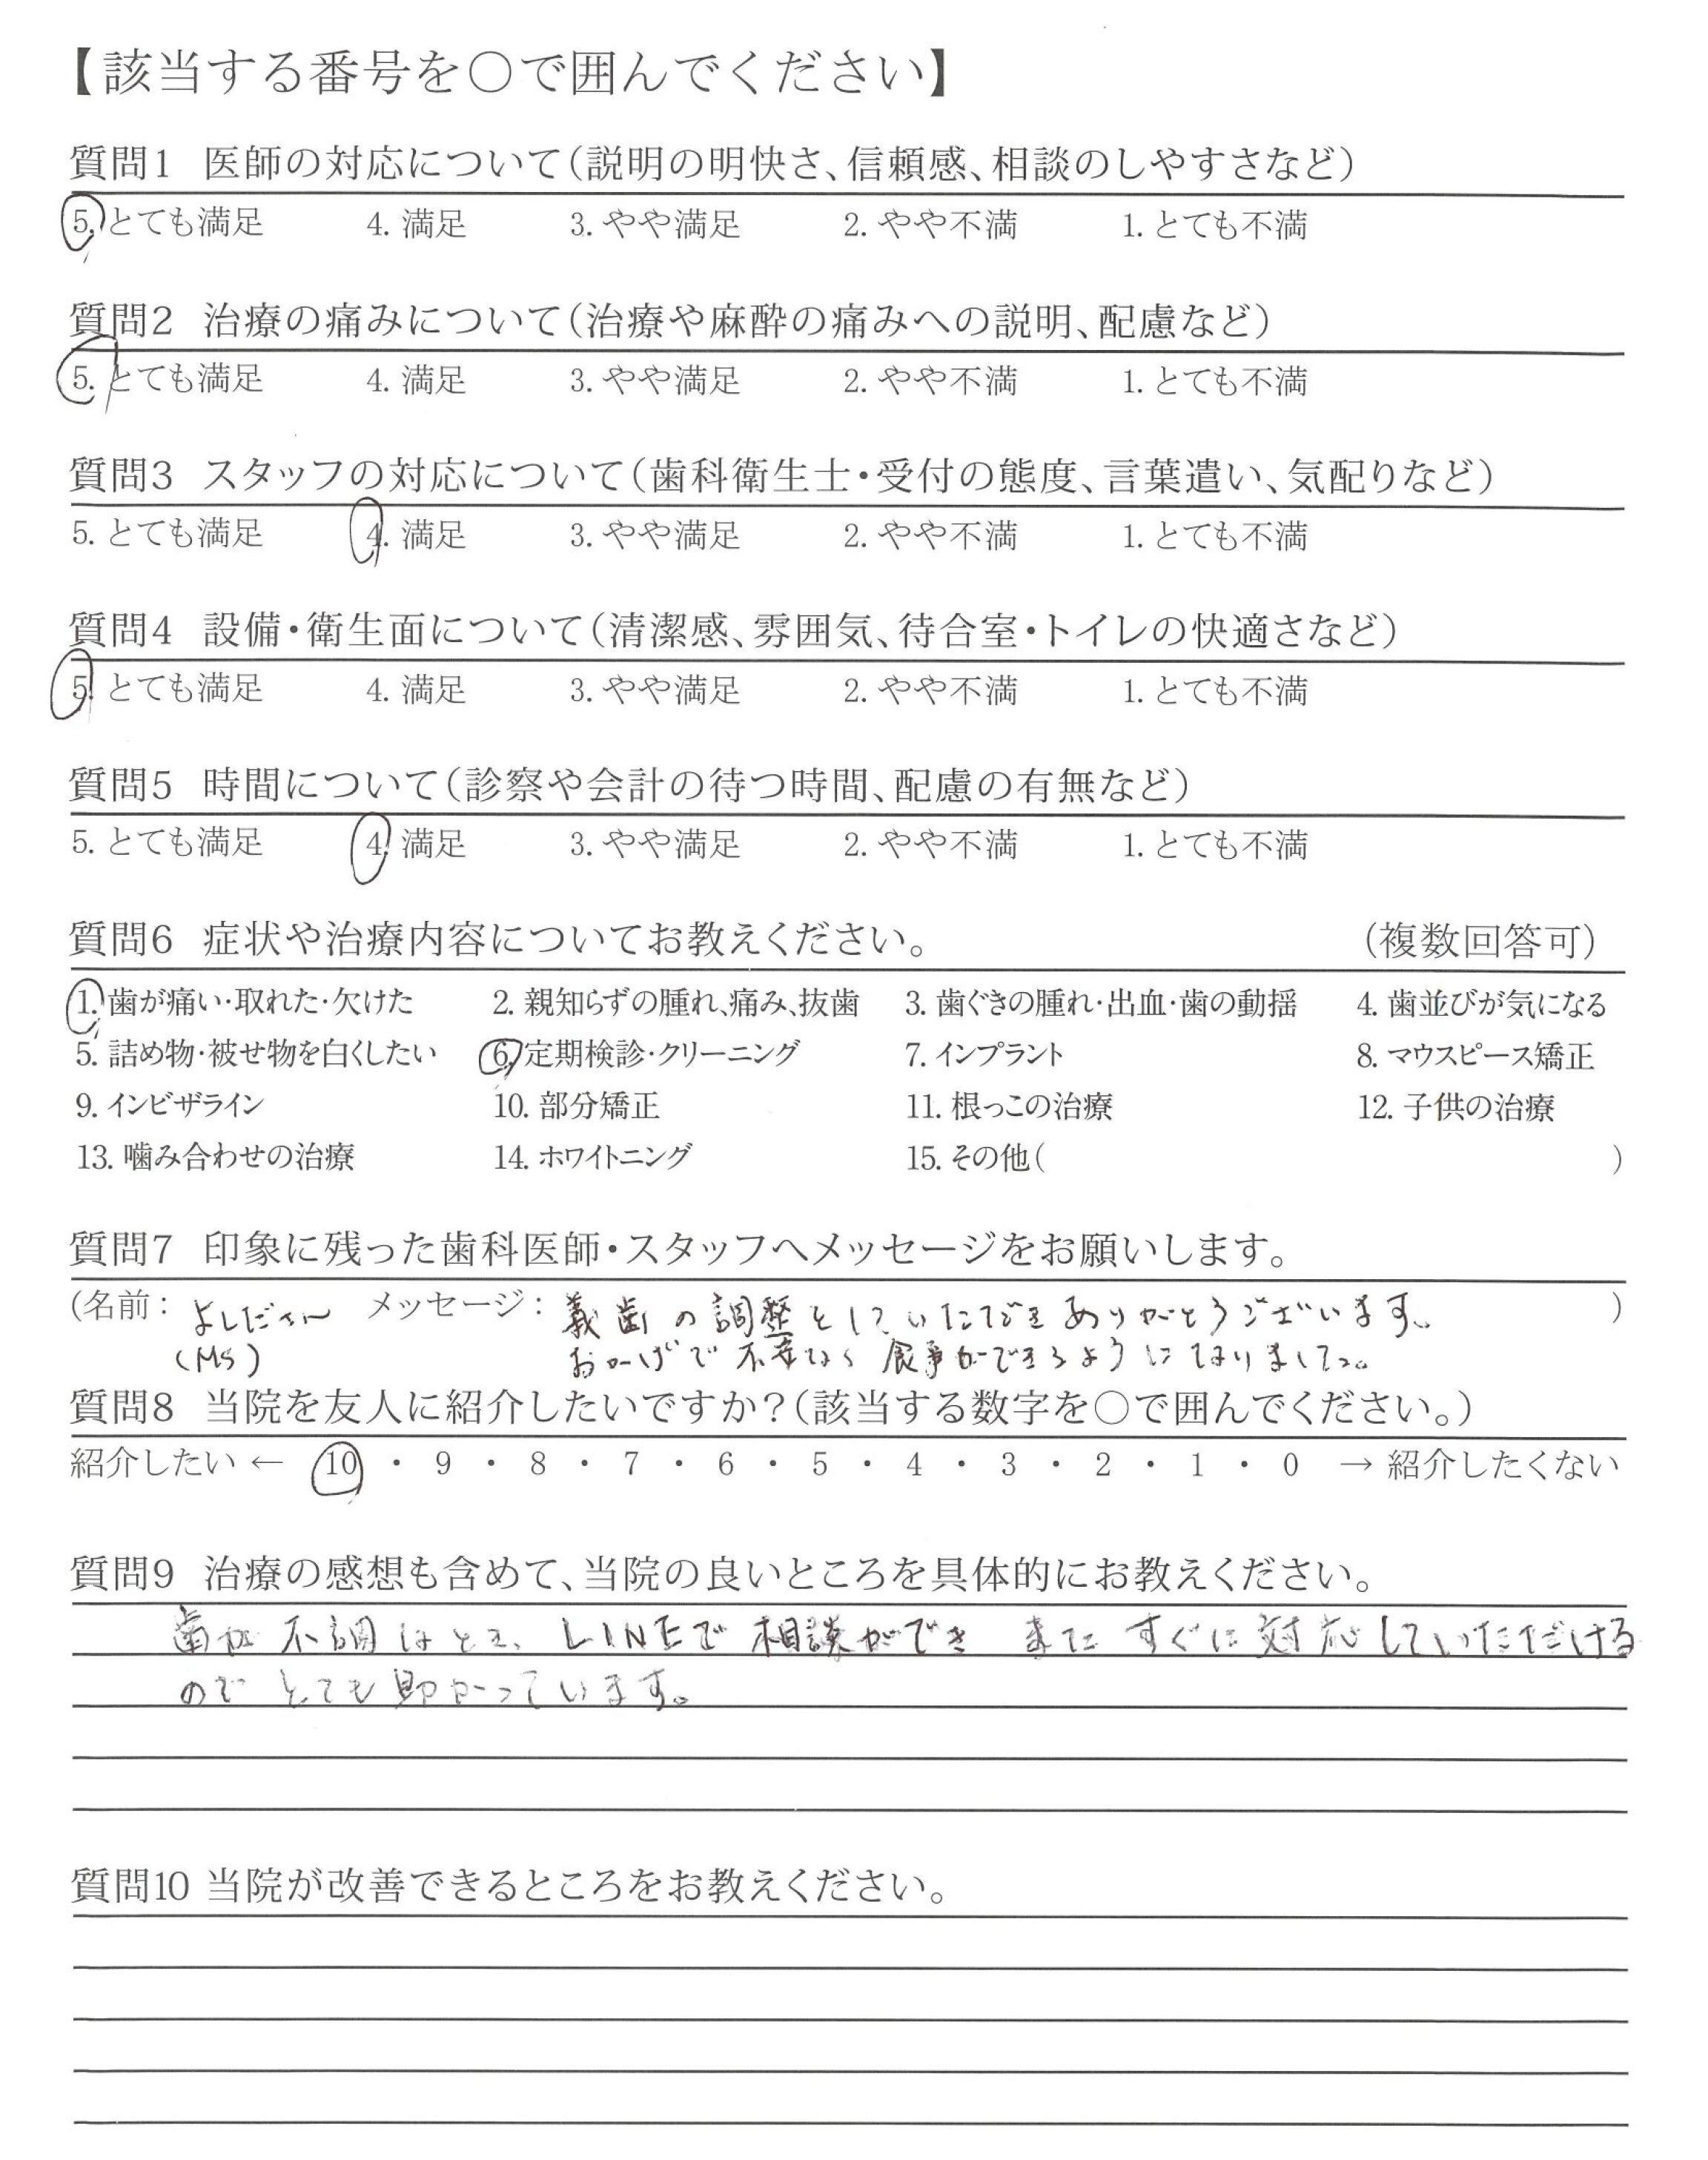 【該当する番号を○で囲んでください】
質問1 医師の対応について(説明の明快さ、信頼感、相談のしやすさなど)
5. とても満足 4. 満足 3. やや満足 2. やや不満 1. とても不満
質問2 治療の痛みについて(治療や麻酔の痛みへの説明、配慮など)
5. とても満足 4. 満足 3. やや満足 2. やや不満 1. とても不満
質問3 スタッフの対応について(歯科衛生士・受付の態度、言葉遣い、気配りなど)
5. とても満足 4. 満足 3. やや満足 2. やや不満 1. とても不満
質問4 設備・衛生面について(清潔感、雰囲気、待合室・トイレの快適さなど)
5. とても満足 4. 満足 3. やや満足 2. やや不満 1. とても不満
質問5 時間について(診察や会計の待つ時間、配慮の有無など)
5. とても満足 4. 満足 3. やや満足 2. やや不満 1. とても不満
質問6 症状や治療内容についてお教えください。 (複数回答可)
1. 歯が痛い・取れた・欠けた 2. 親知らずの腫れ、痛み、抜歯 3. 歯ぐきの腫れ・出血・歯の動揺 4. 歯並びが気になる
5. 詰め物・被せ物を白くしたい 6. 定期検診・クリーニング 7. インプラント 8. マウスピース矯正
9. インビザライン 10. 部分矯正 11. 根っこの治療 12. 子供の治療
13. 噛み合わせの治療 14. ホワイトニング 15. その他( )
質問7 印象に残った歯科医師・スタッフへメッセージをお願いします。
(名前: よしださん メッセージ: 義歯の調整をしていただきありがとうございます。 )
(MS) おかげで不安なく食事ができるようになりました。
質問8 当院を友人に紹介したいですか?(該当する数字を○で囲んでください。)
紹介したい ← 10 ・ 9 ・ 8 ・ 7 ・ 6 ・ 5 ・ 4 ・ 3 ・ 2 ・ 1 ・ 0 → 紹介したくない
質問9 治療の感想も含めて、当院の良いところを具体的にお教えください。
歯が不調なとき、LINEで相談ができ またすぐに対応していただける
のでとても助かっています。
質問10 当院が改善できるところをお教えください。